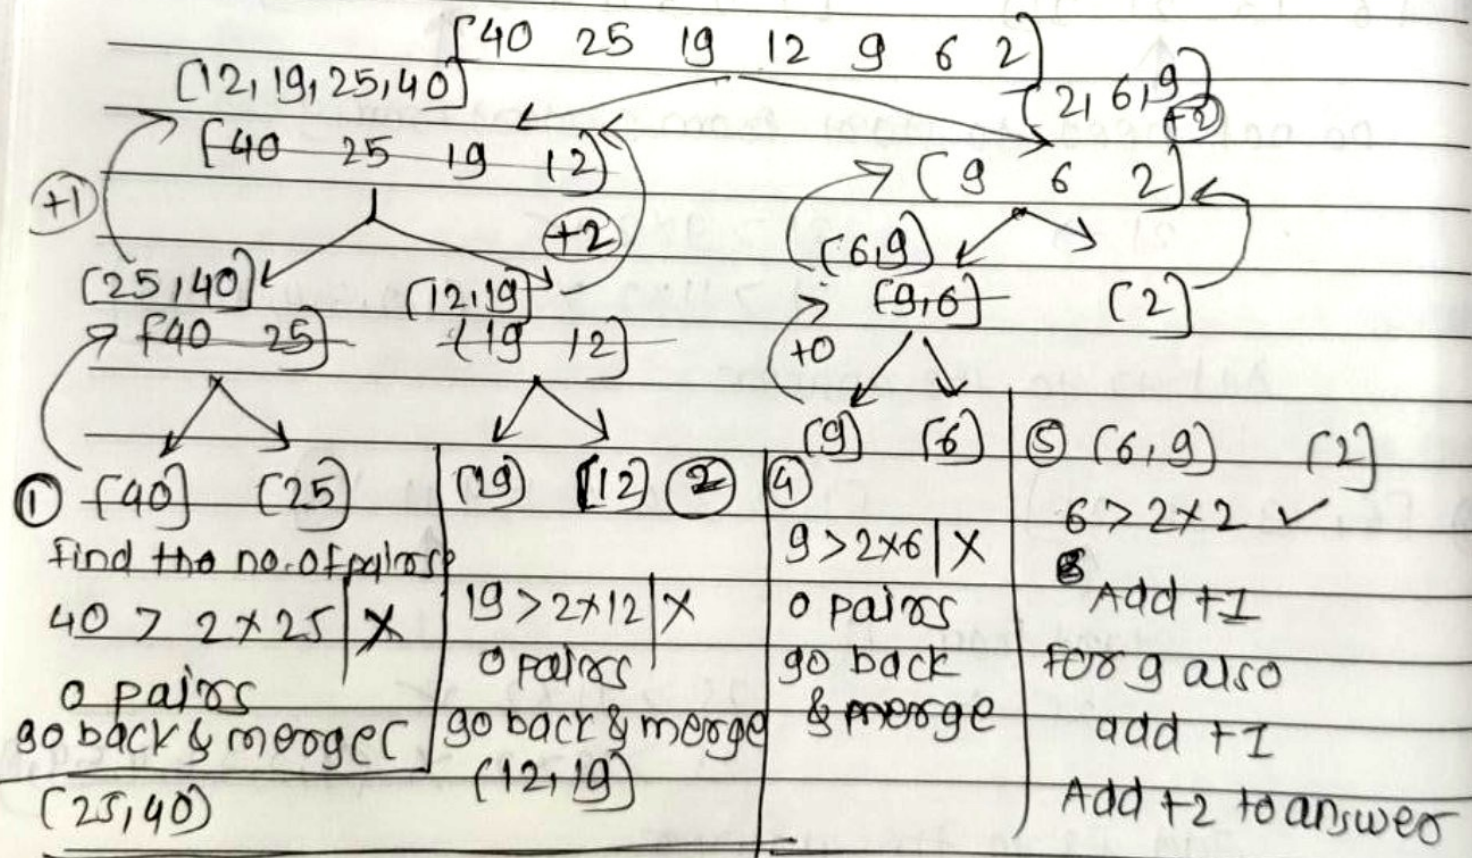 [40 25 19 12 9 6 2]
[12, 19, 25, 40]
[2, 6, 9]
+2
[40 25 19 12]
[9 6 2]
+1
+2
[6,9]
[25,40]
[12,19]
[9,6]
[2]
[40 25]
[19 12]
+0
[9] [6]
① [40] [25]
Find the no. of pairs
40 > 2 * 25 | X
0 pairs
go back & merge [
[25,40]
[19] [12] ②
19 > 2*12 | X
0 pairs
go back & merge
[12,19]
④
9 > 2*6 | X
0 pairs
go back
& merge
⑤ [6,9] [2]
6 > 2*2 ✓
Add +1
For 9 also
add +1
Add +2 to answer